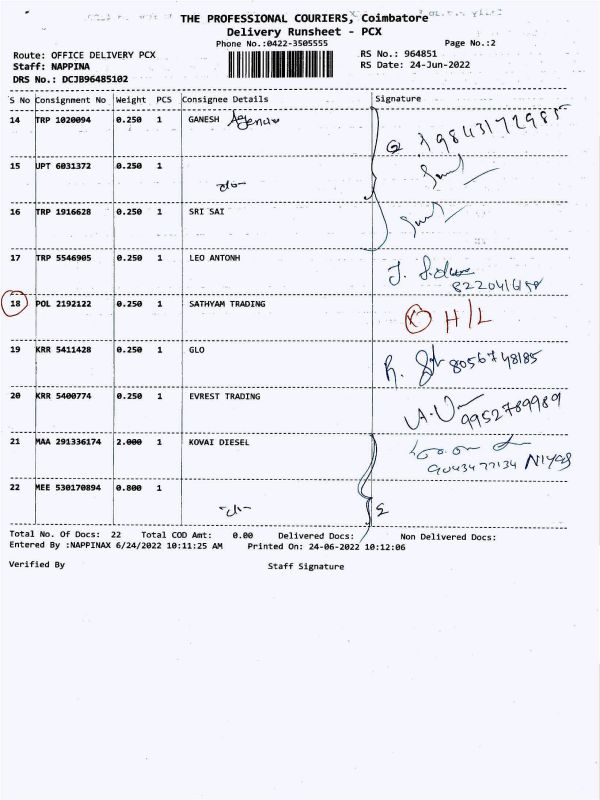 THE PROFESSIONAL COURIERS, Coimbatore
Delivery Runsheet - PCX
Phone No.:0422-3505555
Page No.:2
Route: OFFICE DELIVERY PCX
RS No.: 964851
Staff: NAPPINA
RS Date: 24-Jun-2022
DRS No.: DCJB96485102
S No Consignment No Weight PCS Consignee Details Signature
14 TRP 1020094 0.250 1 GANESH Agencies
9843172985
15 UPT 6031372 0.250 1
16 TRP 1916628 0.250 1 SRI SAI
17 TRP 5546905 0.250 1 LEO ANTONH
18 POL 2192122 0.250 1 SATHYAM TRADING X H/L
19 KRR 5411428 0.250 1 GLO R. 8056748185
20 KRR 5400774 0.250 1 EVREST TRADING
9952789989
21 MAA 291336174 2.000 1 KOVAI DIESEL
9043477134 NIYAS
22 MEE 530170894 0.800 1
Total No. Of Docs: 22 Total COD Amt: 0.00 Delivered Docs: Non Delivered Docs:
Entered By :NAPPINAX 6/24/2022 10:11:25 AM Printed On: 24-06-2022 10:12:06
Verified By Staff Signature